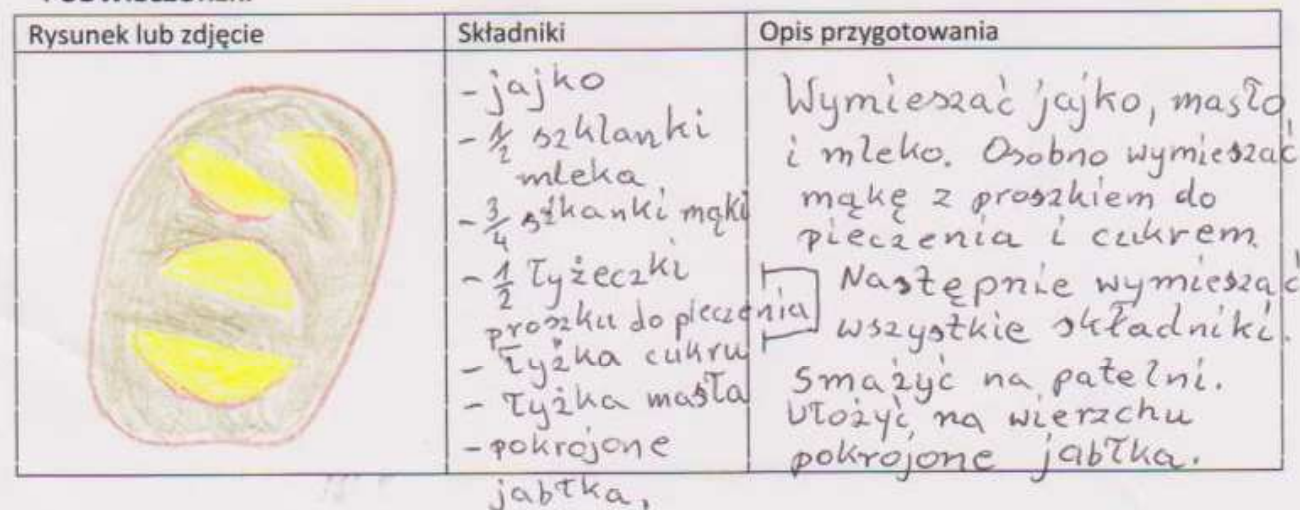 Rysunek lub zdjęcie
Składniki
Opis przygotowania
- jajko
- 1/2 szklanki
mleka
- 3/4 szkanki mąki
- 1/2 łyżeczki
proszku do pieczenia
- łyżka cukru
- łyżka masła
- pokrojone
jabłka,
Wymieszać jajko, masło
i mleko. Osobno wymieszać
mąkę z proszkiem do
pieczenia i cukrem
Następnie wymieszać
wszystkie składniki.
Smażyć na patelni.
Ułożyć na wierzchu
pokrojone jabłka.